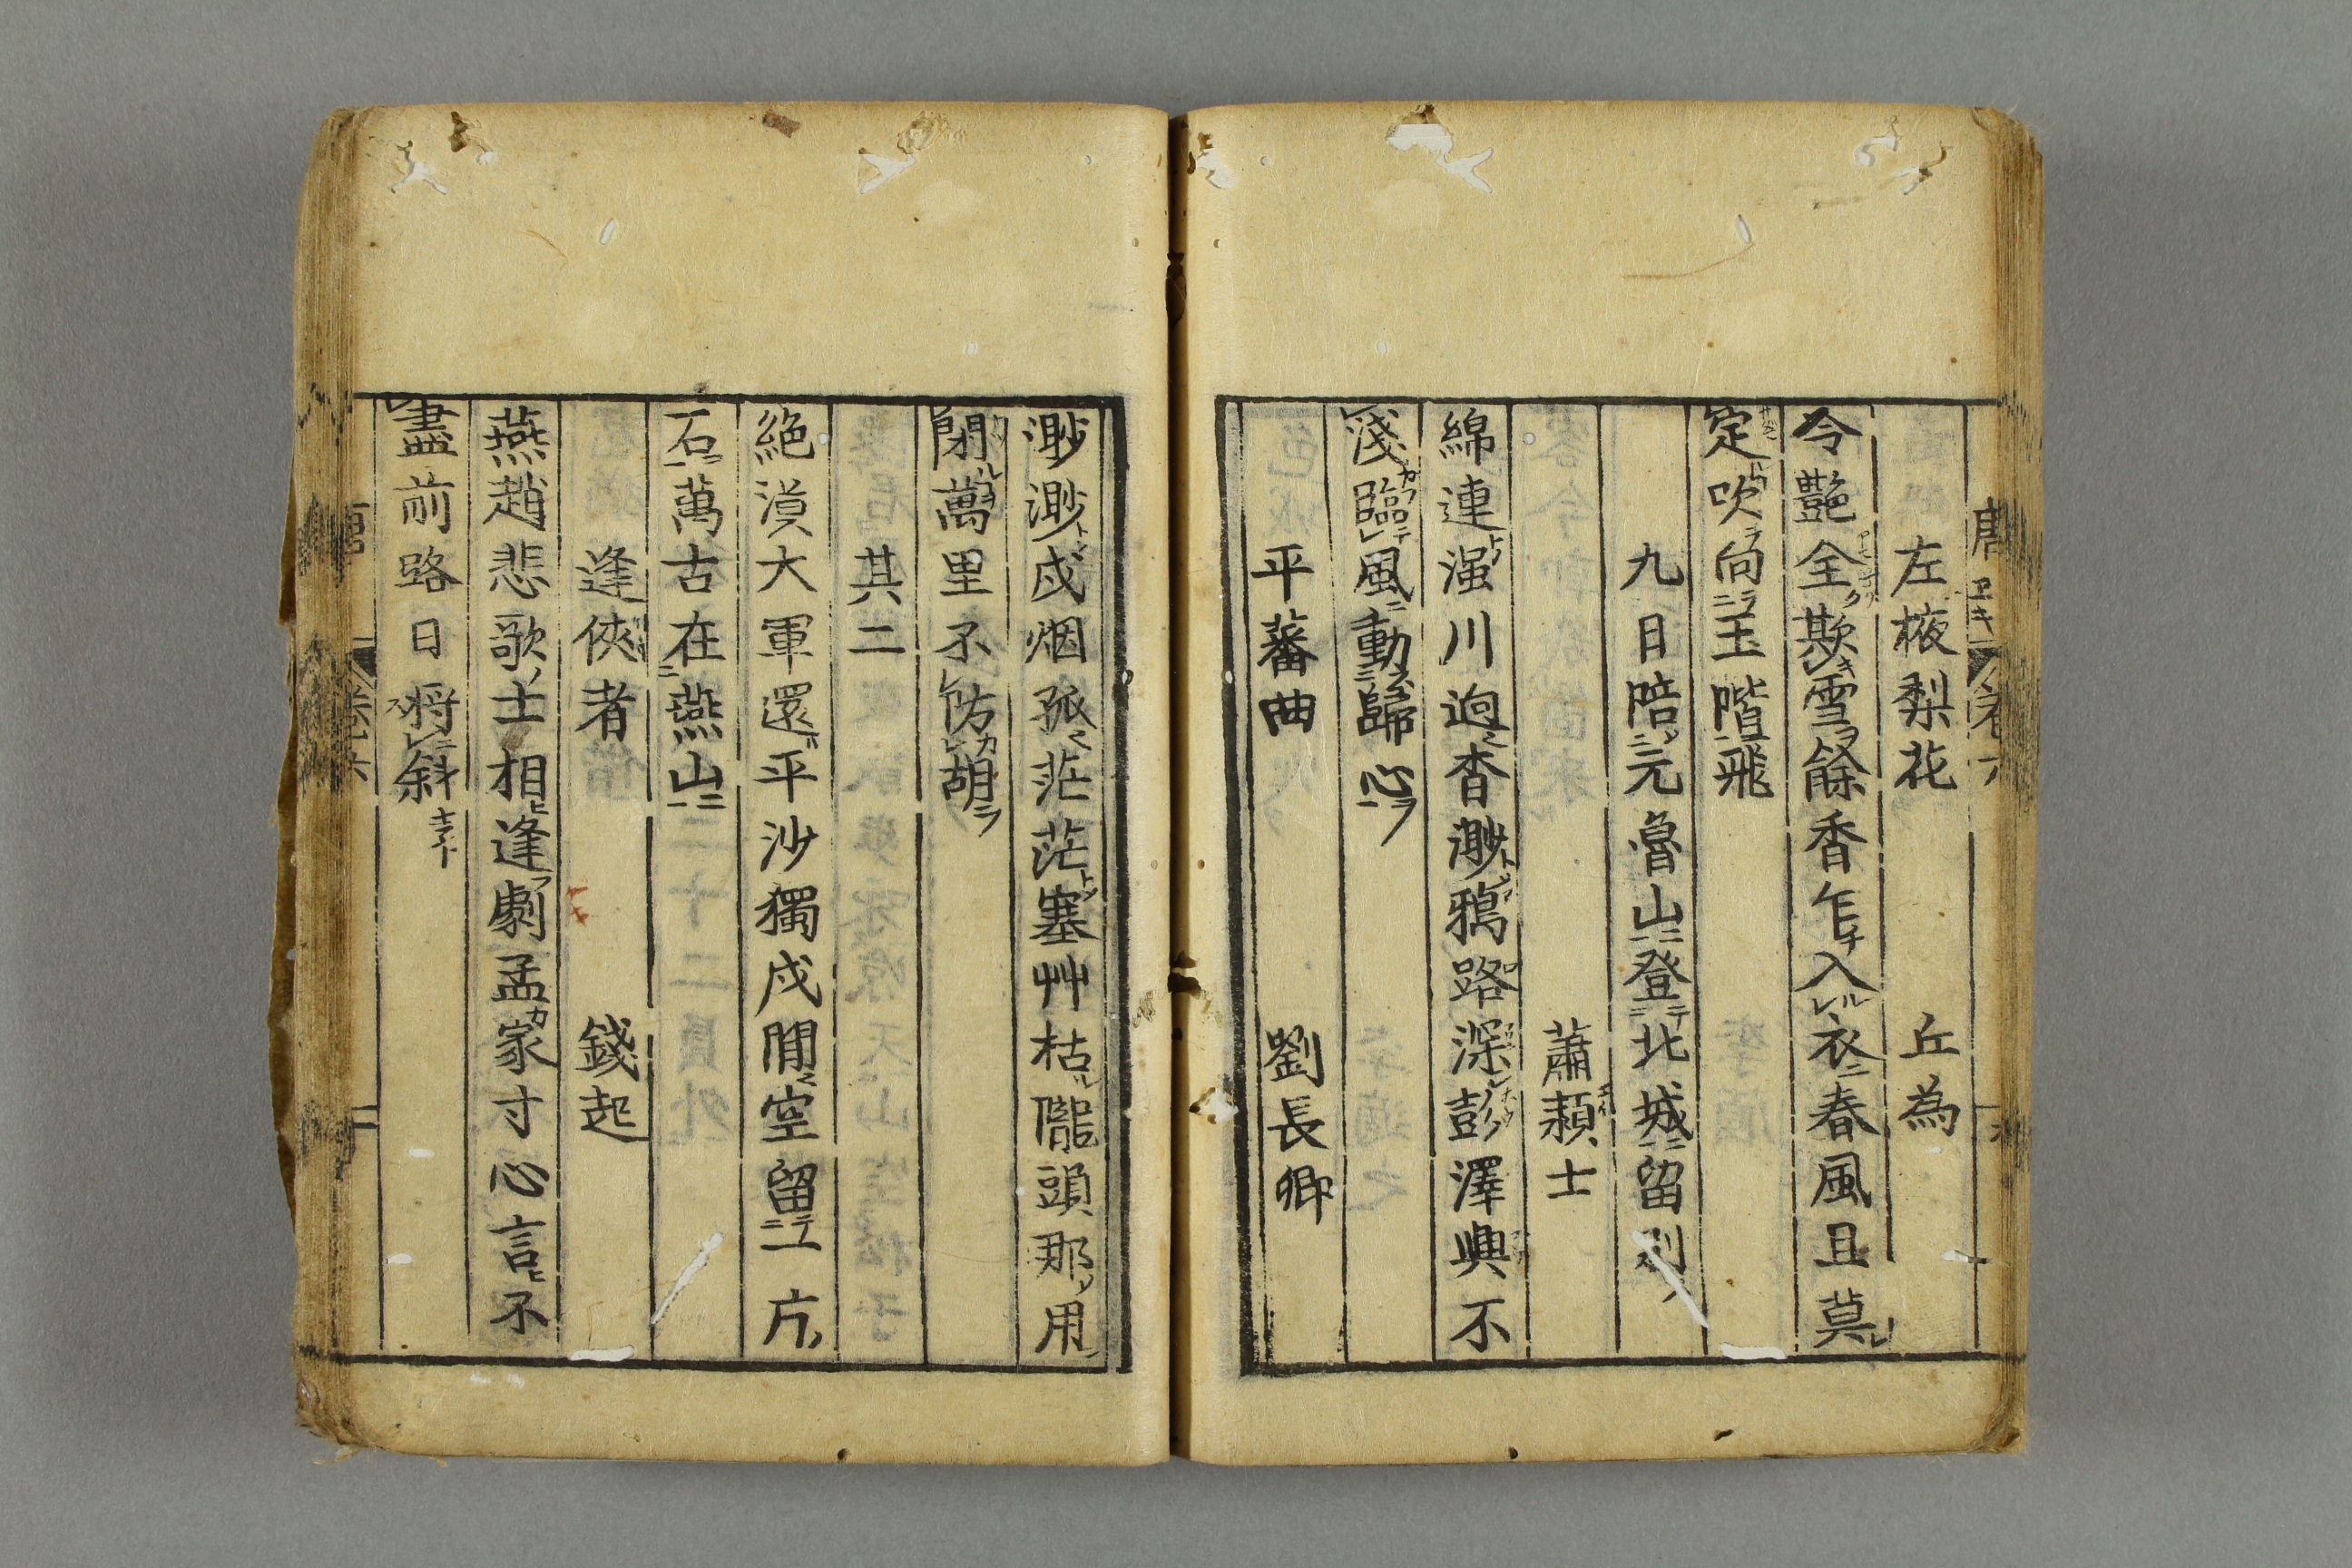 左掖梨花　丘為
令艶全欺雪餘香乍入衣春風且莫
定吹向玉階飛
九日陪元魯山登北城留別
蕭頴士
綿連滍川逈杳渺鴉路深彭澤興不
淺臨風動歸心
平蕃曲　劉長卿
渺渺戍烟孤茫茫塞艸枯隴頭那用
閉萬里不防胡
其二
絶漠大軍還平沙獨戍閒空留一片
石萬古在燕山
逢俠者　錢起
燕趙悲歌士相逢劇孟家寸心言不
盡前路日将斜